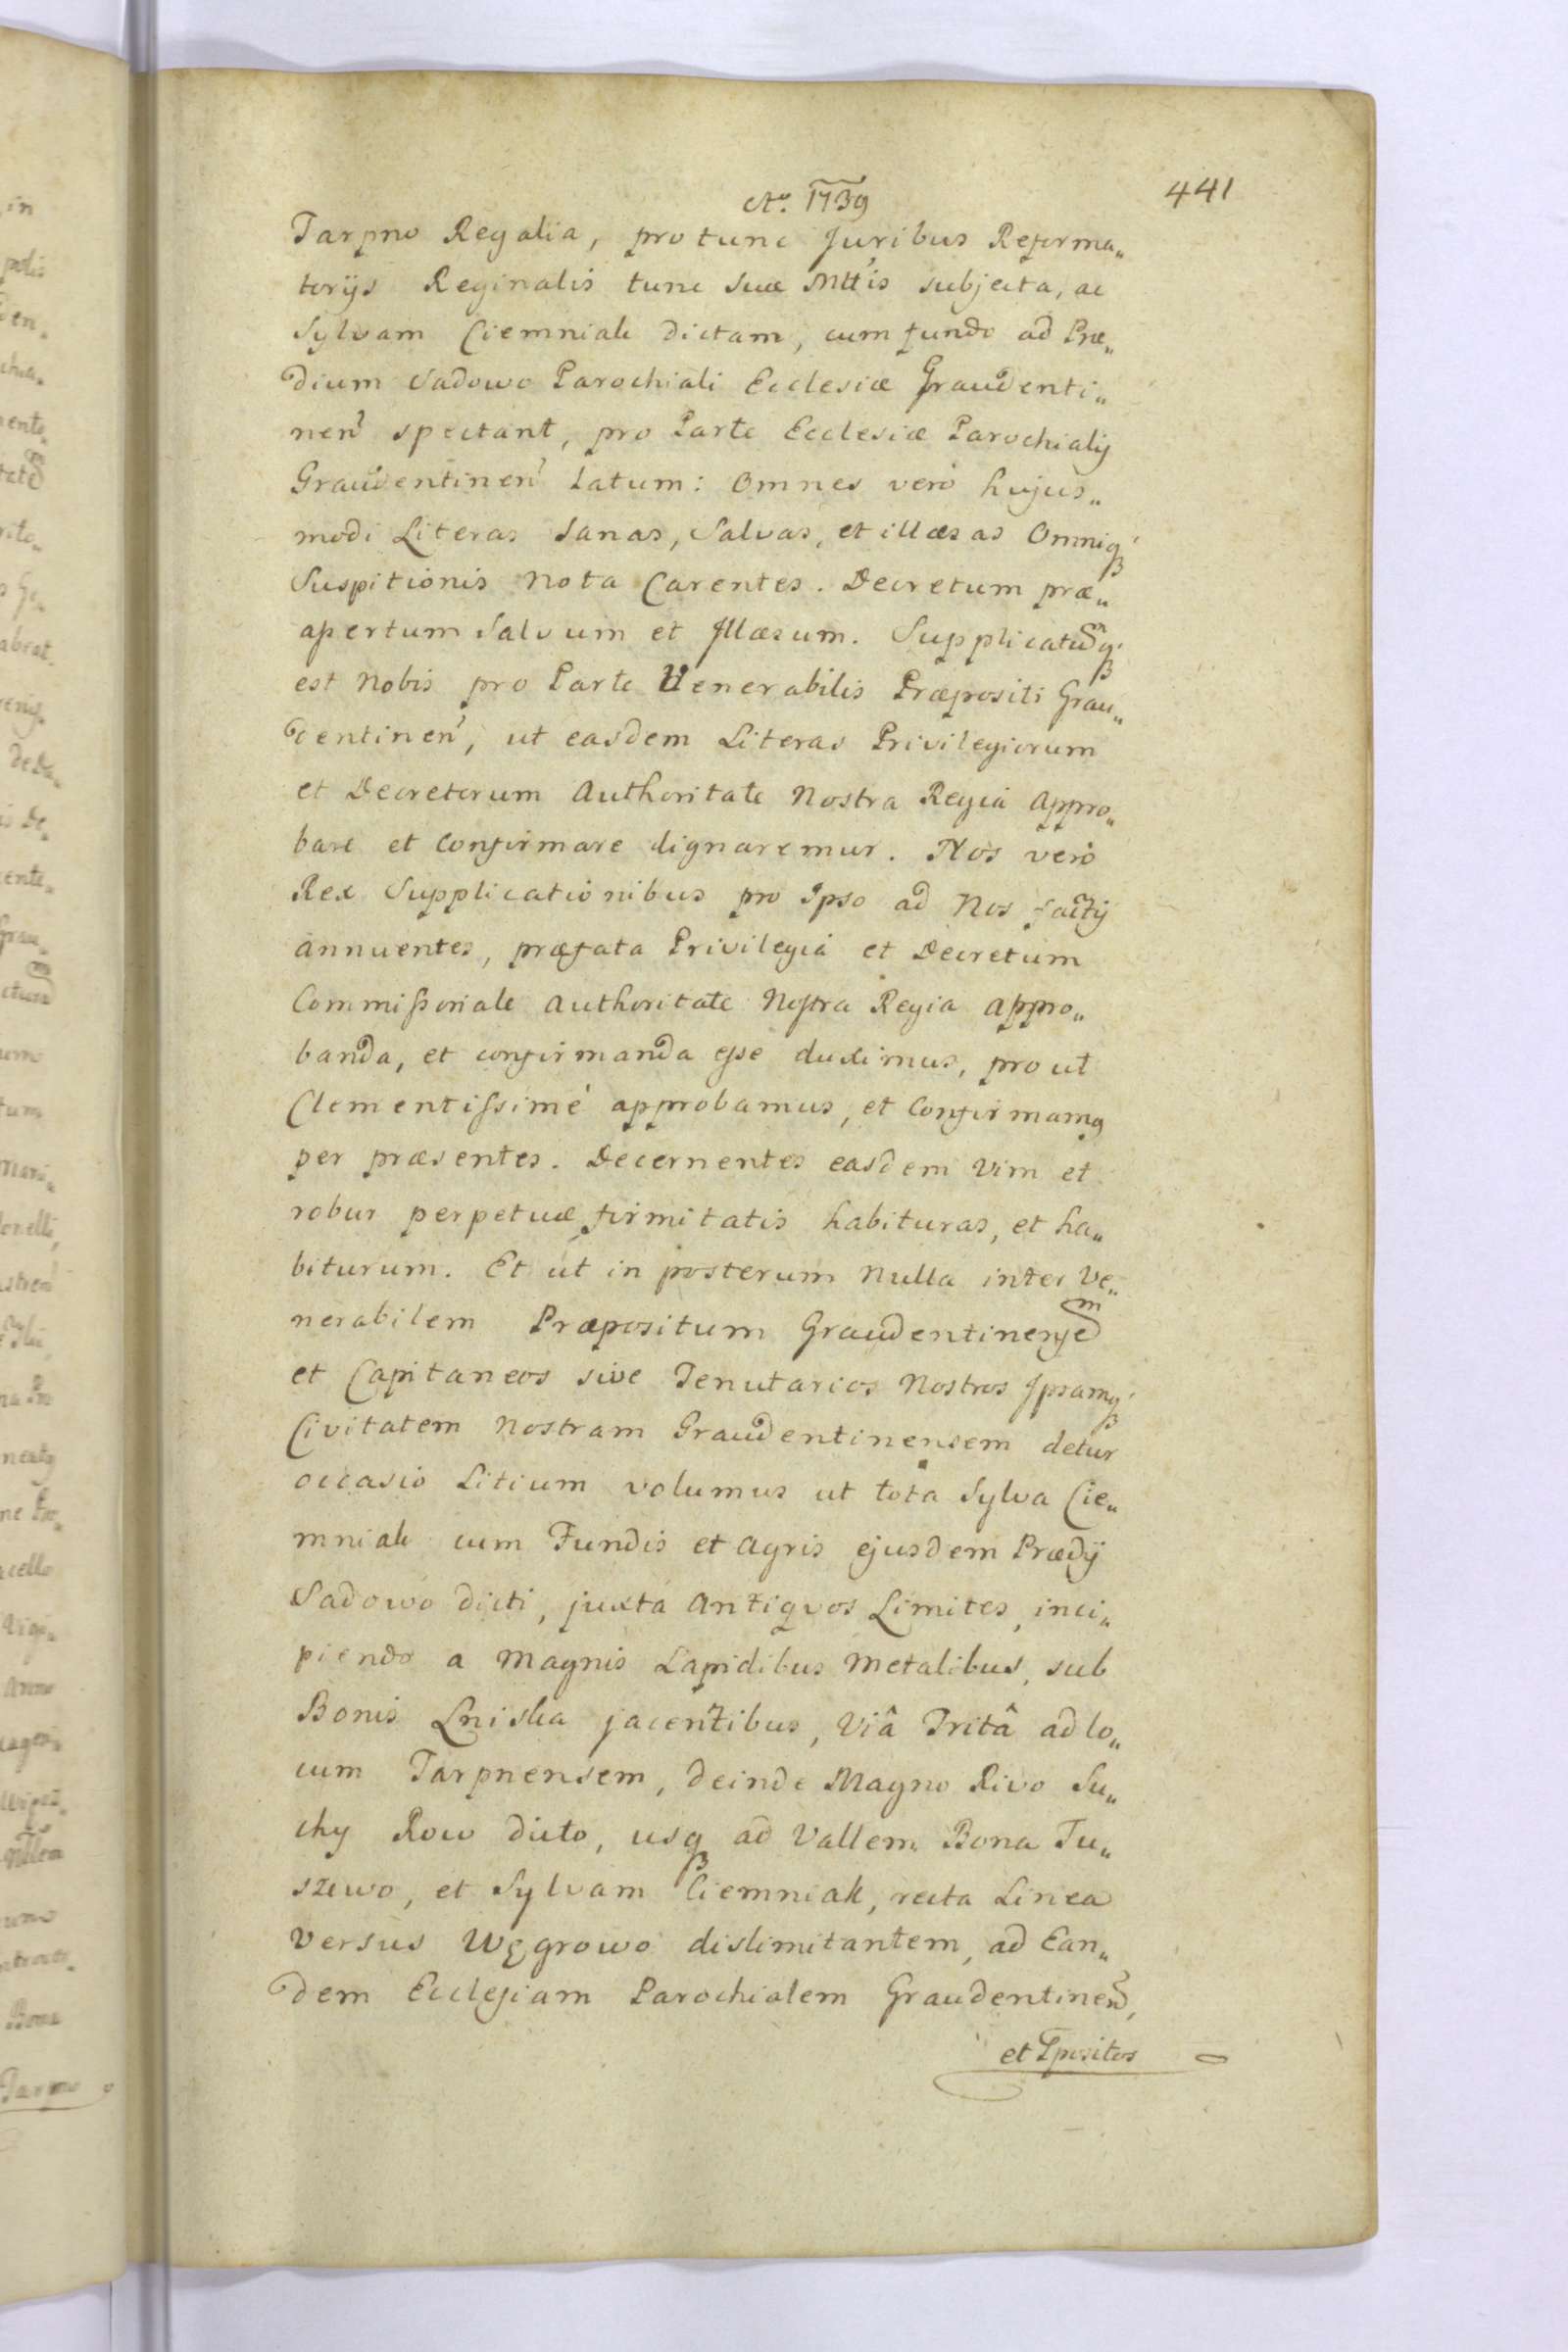 Aº. 1739
441
Tarpno Regalia, pro tunc Juribus Reforma„
torijs Reginalis tunc Suæ Mttis subjecta, ac
Sylvam Ciemniak dictam, cum fundo ad Præ„
dium Sadowo Parochiali Ecclesiæ Graudenti„
nen̄ spectant, pro Parte Ecclesiæ Parochialis
Graudentinen̄ latum: Omnes vero hujus„
modi Literas Sanas, Salvas, et illæsas Omniq́
Suspitionis Nota Carentes. Decretum præ„
apertum Salvum et Illæsum. Supplicatumq́
est Nobis pro Parte Venerabilis Præpositi Grau„
dentinen̄, ut easdem Literas Privilegiorum
et Decretorum Authoritate Nostra Regia Appro„
bare et Confirmare dignaremur. Nos vero
Rex Supplicationibus pro Ipso ad Nos factis
annuentes, præfata Privilegia et Decretum
Commissoriale Authoritate Nostra Regia appro„
banda, et confirmanda esse duximus, pro ut
Clementissimè approbamus, et Confirmamus
per præsentes. Decernentes easdem Vim et
robur perpetuæ firmitatis habituras, et ha„
biturum. Et ut in posterum Nulla inter Ve„
nerabilem Præpositum Graudentinensem
et Capitaneos sive Tenutarios Nostros Ipsamq́
Civitatem Nostram Graudentinensem detur
occasio Litium volumus ut tota Sylva Cie„
mniak cum Fundis et Agris ejusdem Prædij
Sadowo dicti, juxta Antiqvos Limites, inci„
piendo a Magnis Lapidibus Metalibus, sub
Bonis Lniska jacentibus, Viâ Tritâ ad lo„
cum Tarpnensem, deinde Magno Rivo Su„
chy Row dicto, usq ad Vallem Bona Tu„
szewo, et Sylvam Ciemniak, recta Linea
versus Węgrowo dislimitantem, ad Ean„
dem Ecclesiam Parochialem Graudentinen̄,
et Ppositos